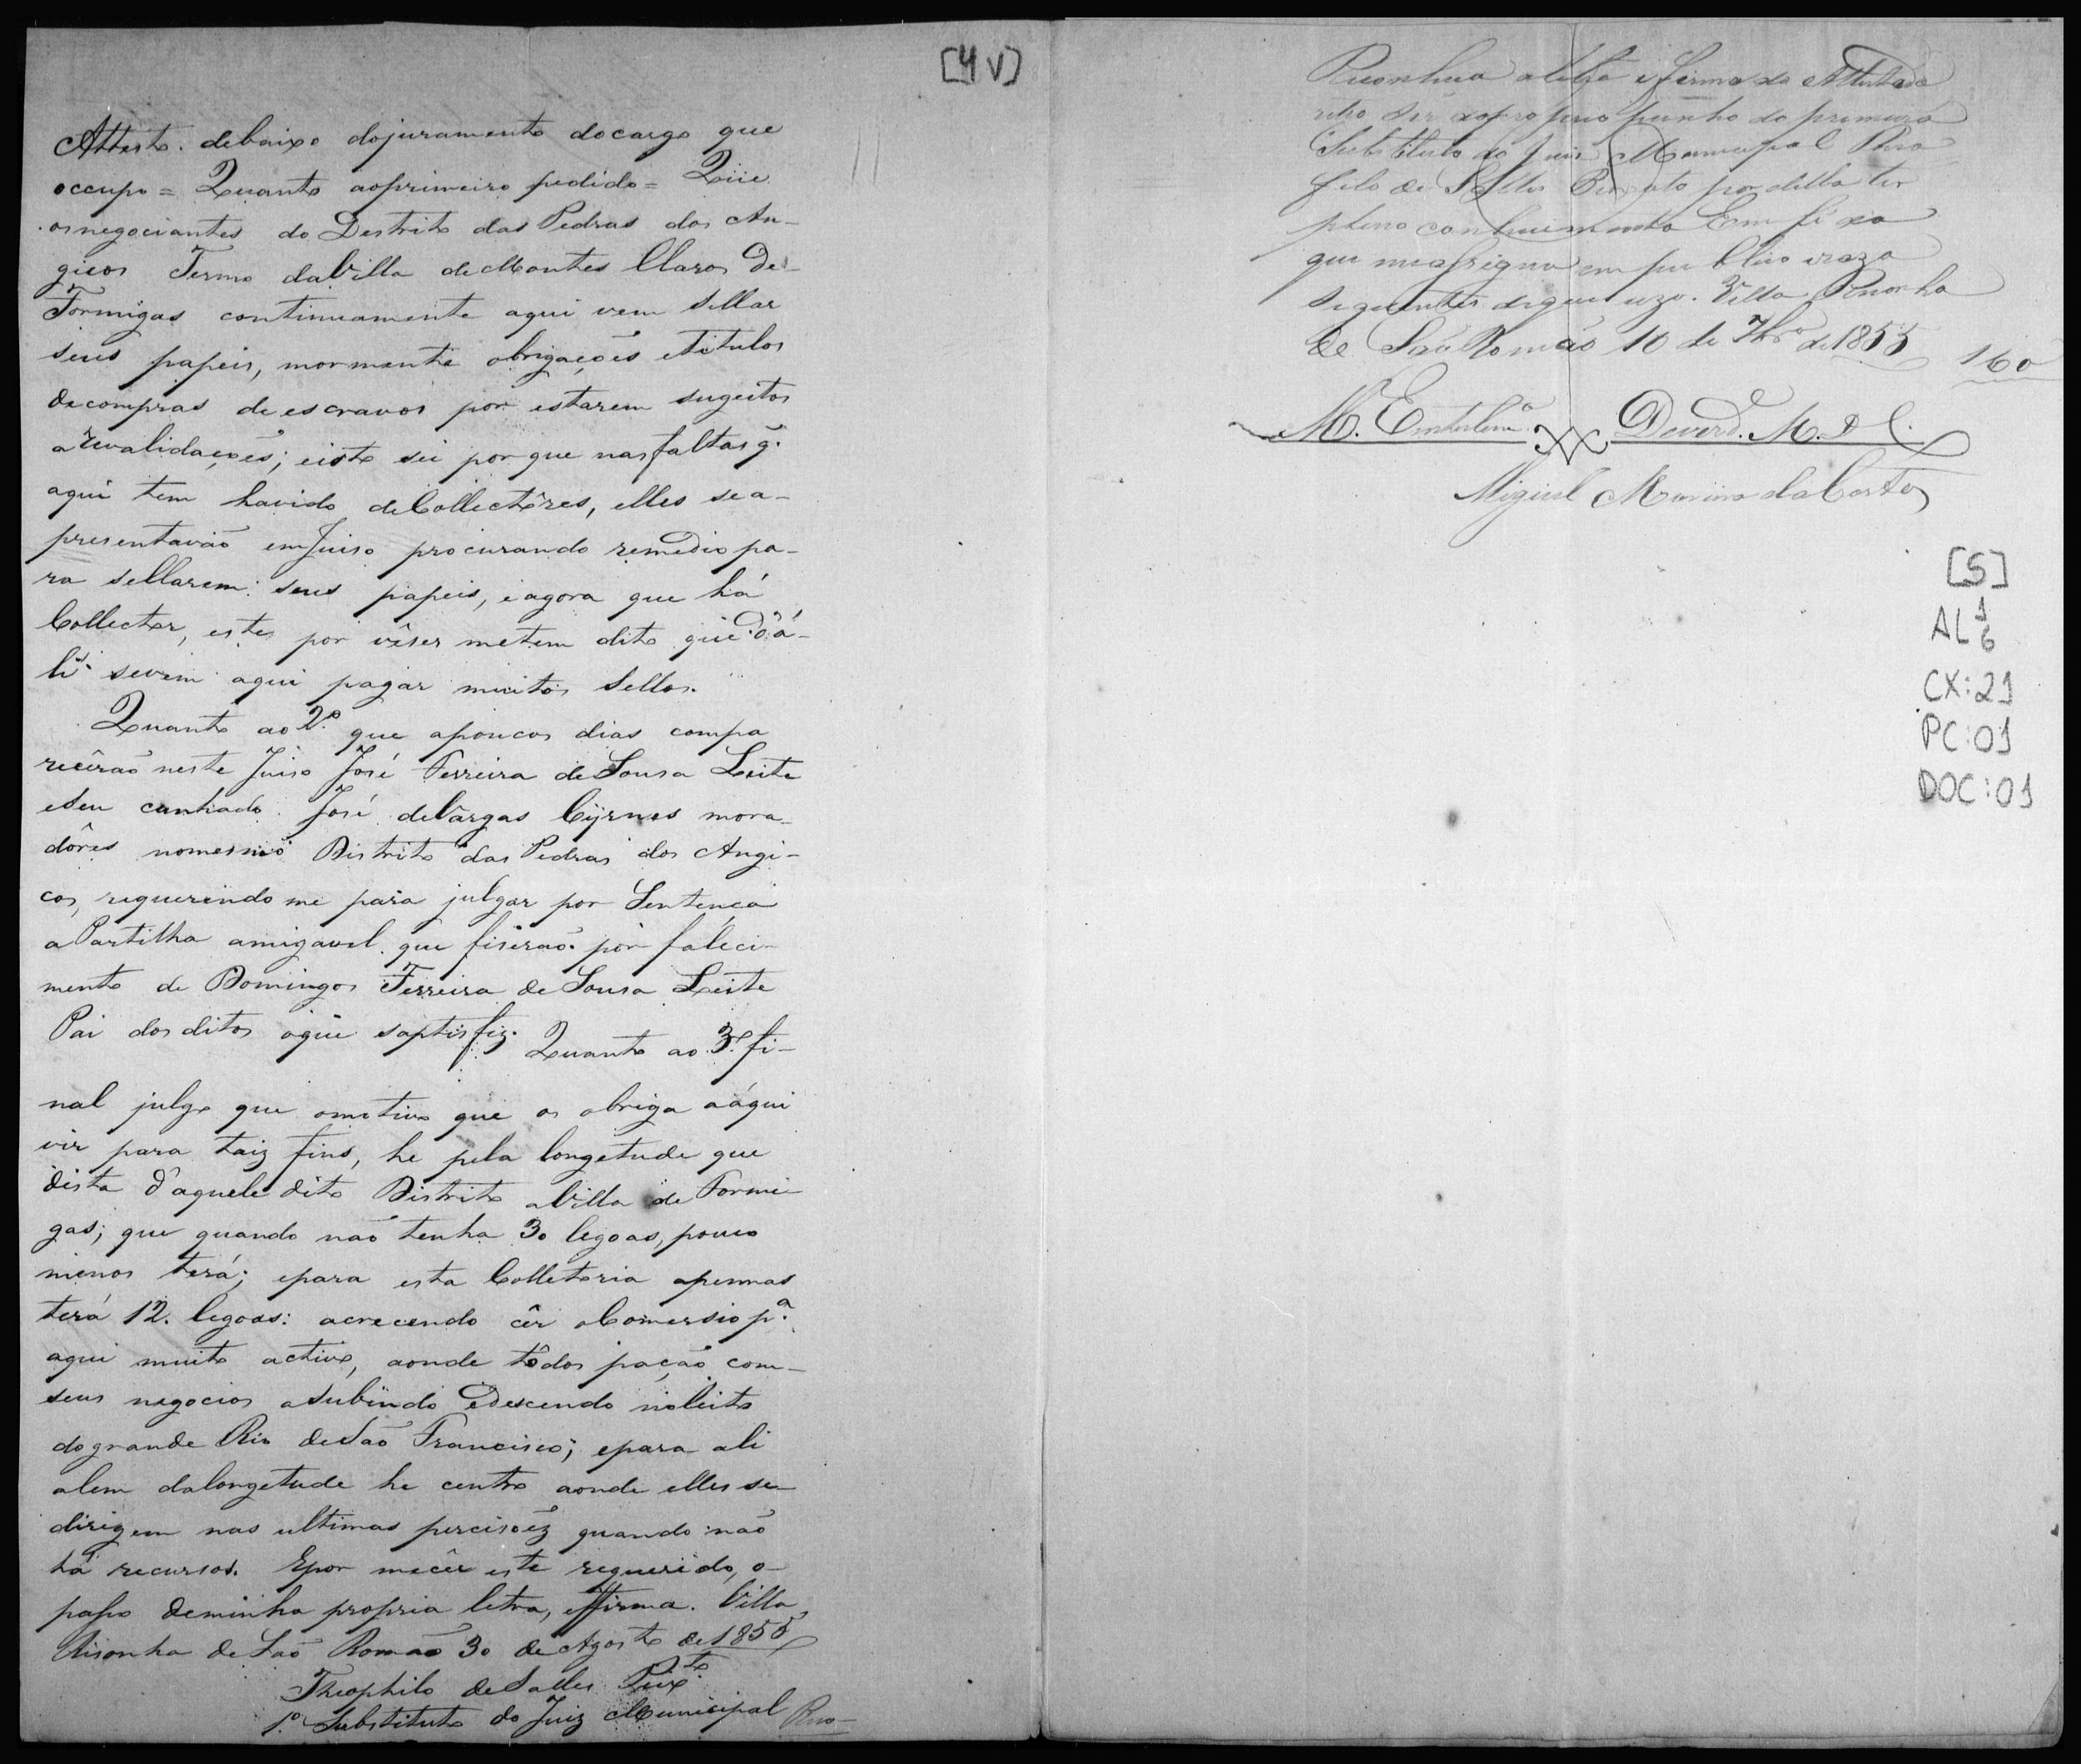 [4V]
Attesto debaixo dojuramento docargo que
occupo = Quanto aoprimeiro pedido = Qüe
osnegociantes do Destrito das Pedras dos An-
gicos Termo daVilla deMontes Claros De
Formigas continuamente aqui vem Sellar
seus papeis, mormente obrigações etitulos
decompras de escravos por estarem sugeitos
arevalidações; eisto sei por que nas faltas q̃
aqui tem havido deCollectôres, elles sea-
presentavão emJuiso procurando remedio pa-
ra sellarem seus papeis, eagora que há
Collector, estes por vêses metem dito que d'á-
li sevem aqui pagar muitos Sellos.
Quanto ao 2º que apoucos dias compa
recêrão neste Juiso José Ferreira deSousa Leite
eSeu cunhado José deVargas Cÿrnes mora-
dôres nomesmo Districto das Pedras dos Angi-
cos, requerendo me para julgar por Sentença
aPartilha amigavel que fiserão por faleci-
mento de Domingos Ferreira de Sousa Leite
Pai dos ditos oque saptisfiz. Quanto ao 3º fi-
nal julgo que omotivo que os obriga aáqui
vir para taiz fins, he pela longetude que
dista d'aquele dito Distrito aVilla de Formi-
gas; que quando não tenha 30 legoas, pouco
menos terá; epara esta Colletoria apennas
terá 12. legoas: acrecendo cêr oComersio pª
aqui muito activo, aonde tôdos pação com-
seus negocios aSubindo eDescendo noleito
dogrande Rio deSão Francisco; epara ali
alem dalongetude he centro aonde elles se
dirigem nas ultimas percisoẽz quando não
há recursos. Epor mecêr este requerido, o-
passo deminha propria letra, effirma. Villa
Risonha deSão Romão 30 deAgosto de1855
Theophilo deSalles Peixto
1º Substituto do Juiz Municipal Reco-
Reconheco aletra e firma do Attestado
retro Ser dopropino punho do primeiro
Substituto do Juis Municipal Theo
filo de Salles Peixoto por della ter
pleno conhecimento Em fé do
que measigno em publico erazo
Seguentes deque uzo. Villa Risonha
de São Romão 10 de 7bro de 1855
160
M. Em de Verd. M. d C.
Miguel Moreira daCosta
[5]
AL 1 6
CX:21
PC:01
DOC:01